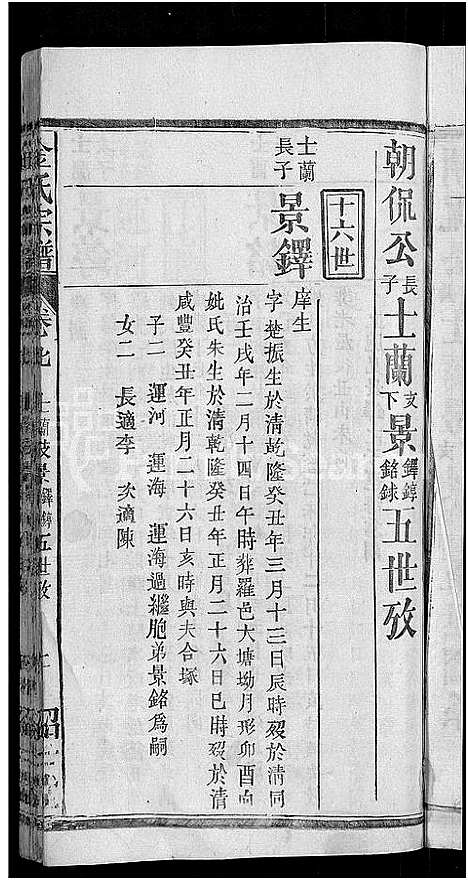 朝侃公長子士蘭支下景鐸錞銘銶五世攷
十六世
士蘭長子
景鐸
庠生
字楚振生於清乾隆癸丑年三月十三日辰時歿於清同
治壬戌年二月十四日午時葬羅邑大塘坳月形卯酉向
妣氏朱生於清乾隆癸丑年正月二十六日巳時歿於清
咸豐癸丑年正月二十六日亥時與夫合塚
子二 運河 運海 運海過繼胞弟景銘爲嗣
女二 長適李 次適陳
金氏宗譜 卷之 士蘭支景鐸 五世攷